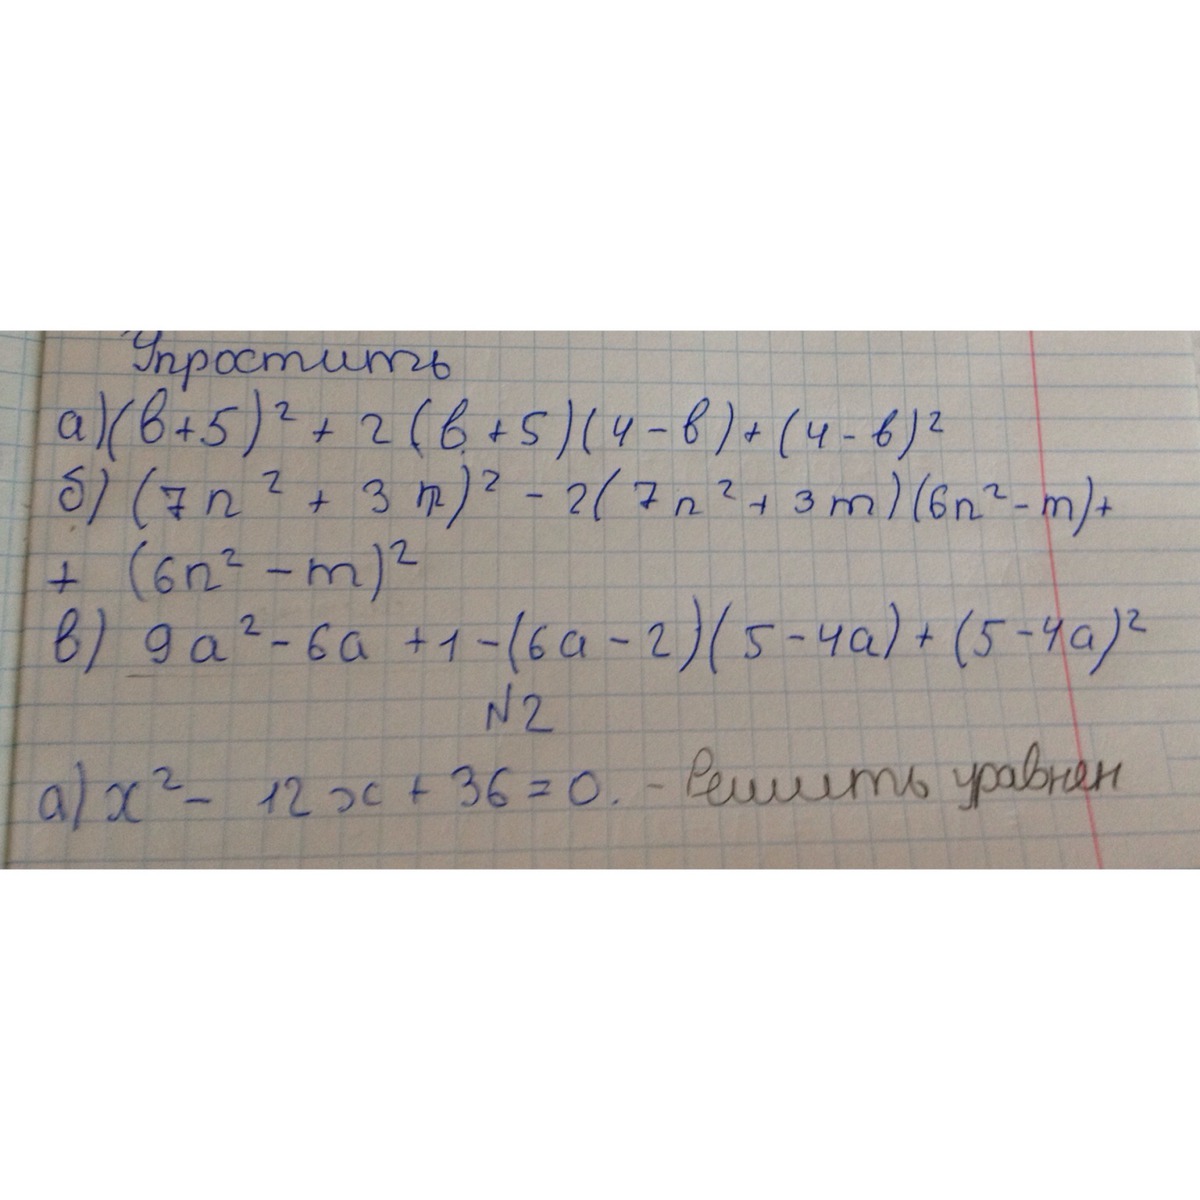 Упростить
а) (в+5)² + 2(в+5)(4-в)+(4-в)²
б) (7n² + 3m)² - 2(7n²+3m)(6n²-m)+
+ (6n²-m)²
в) 9a²-6a+1-(6a-2)(5-4a)+(5-4a)²
N2
а) x²- 12x+36=0. - Решить уравнен